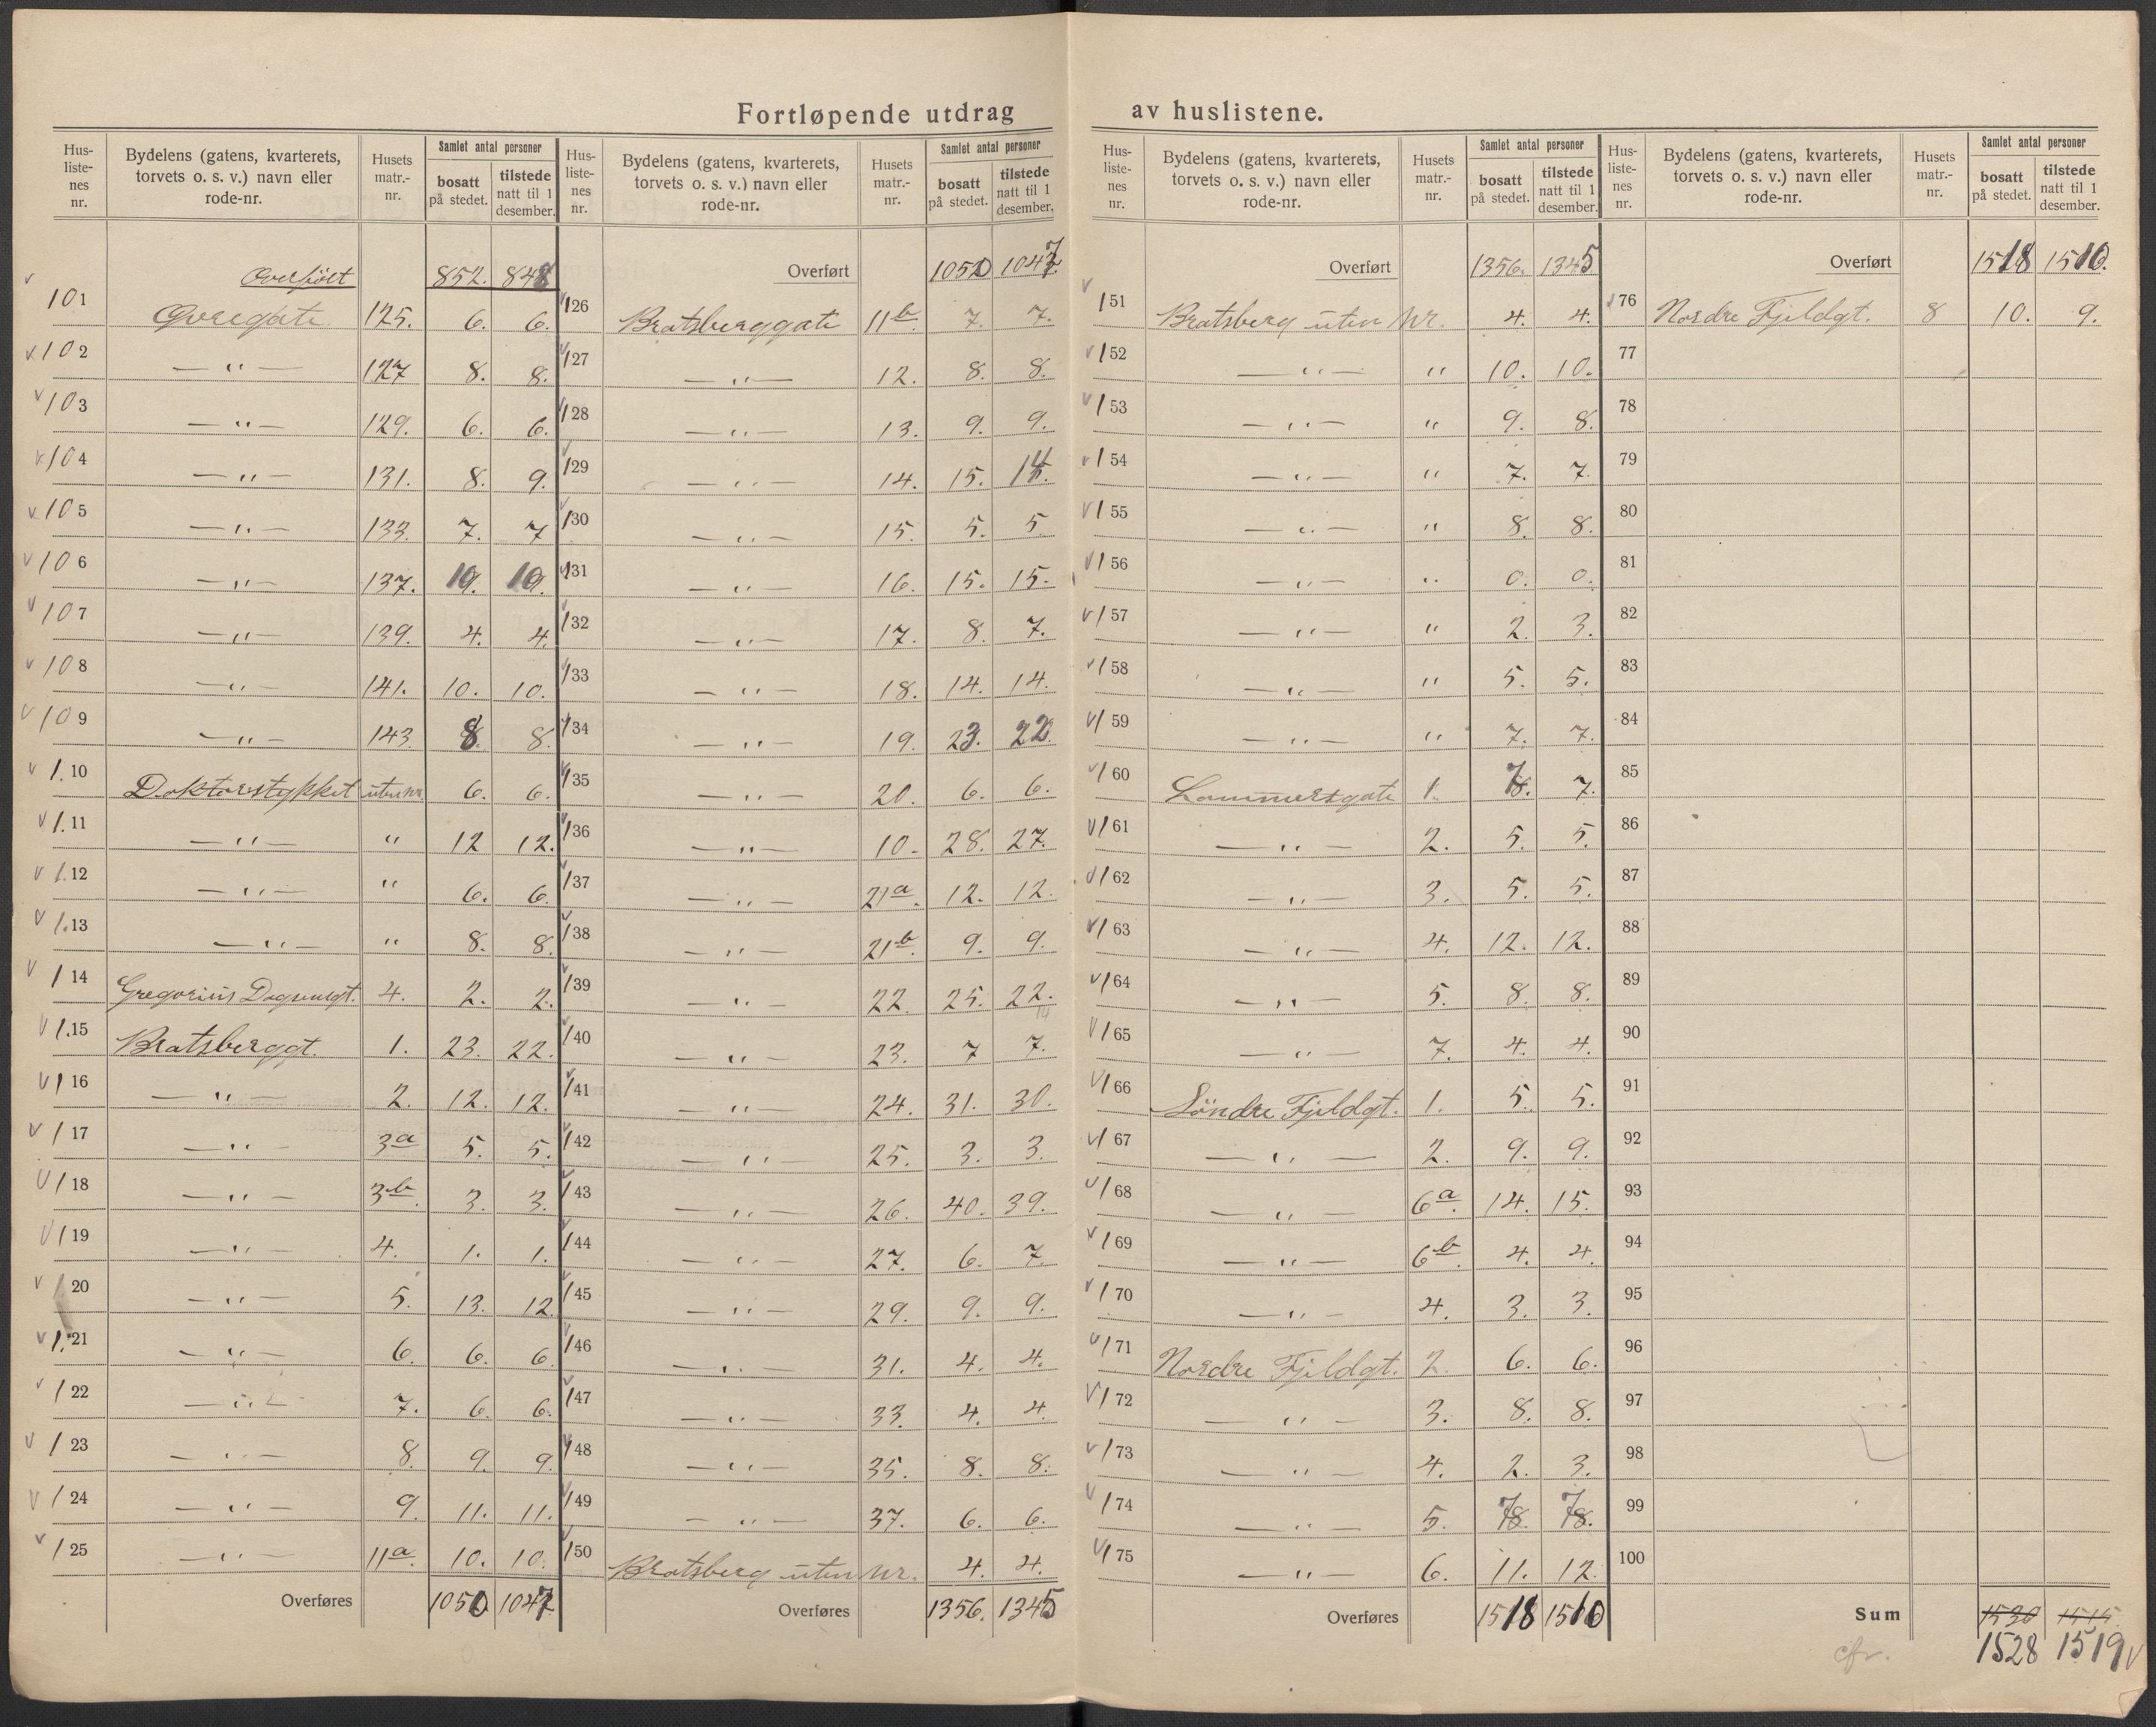 Fortløpende utdrag av huslistene.
Hus-liste-nes nr. | Bydelens (gatens, kvarterets, torvets o. s. v.) navn eller rode-nr. | Husets matr.-nr. | Samlet antal personer | bosatt på stedet. | tilstede natt til 1 desember.
Overført 852. 848
101 Øvregate 125. 6. 6.
102 — „ — 127 8. 8.
103 — „ — 129. 6. 6.
104 — „ — 131. 8. 9.
105 — „ — 133. 7. 7
106 — „ — 137. 19. 19.
107 — „ — 139. 4. 4.
108 — „ — 141. 10. 10.
109 — „ — 143. 8. 8.
110 Doktorstykket uten nr. 6. 6.
111 — „ — „ 12 12.
112 — „ — „ 6. 6.
113 — „ — „ 8. 8.
114 Gregorius Dagsonsgt. 4. 2. 2.
115 Bratsberggt. 1. 23. 22.
116 — „ — 2. 12. 12.
117 — „ — 3a 5. 5.
118 — „ — 3b. 3. 3.
119 — „ — 4. 1. 1.
120 — „ — 5. 13. 12
121 — „ — 6. 6. 6.
122 — „ — 7. 6. 6.
123 — „ — 8. 9. 9.
124 — „ — 9. 11. 11.
125 — „ — 11a. 10. 10.
Overføres 1050 1047
Hus-liste-nes nr. | Bydelens (gatens, kvarterets, torvets o. s. v.) navn eller rode-nr. | Husets matr.-nr. | Samlet antal personer | bosatt på stedet. | tilstede natt til 1 desember.
Overført 1050 1047
126 Bratsberggate 11b. 7. 7.
127 — „ — 12. 8. 8.
128 — „ — 13. 9. 9.
129 — „ — 14. 15. 14.
130 — „ — 15. 5. 5
131 — „ — 16. 15. 15.
132 — „ — 17. 8. 7.
133 — „ — 18. 14. 14.
134 — „ — 19. 23. 22.
135 — „ — 20. 6. 6.
136 — „ — 10. 28. 27.
137 — „ — 21a. 12. 12.
138 — „ — 21b. 9. 9.
139 — „ — 22. 25. 22.
140 — „ — 23. 7 7.
141 — „ — 24. 31. 30.
142 — „ — 25. 3. 3.
143 — „ — 26. 40. 39.
144 — „ — 27. 6. 7.
145 — „ — 29. 9. 9.
146 — „ — 31. 4. 4.
147 — „ — 33. 4. 4.
148 — „ — 35. 8. 8.
149 — „ — 37. 6. 6.
150 Bratsberg uten nr. 4. 4.
Overføres 1356. 1345
Hus-liste-nes nr. | Bydelens (gatens, kvarterets, torvets o. s. v.) navn eller rode-nr. | Husets matr.-nr. | Samlet antal personer | bosatt på stedet. | tilstede natt til 1 desember.
Overført 1356. 1345
151 Bratsberg uten nr. 4. 4.
152 — „ — „ 10. 10.
153 — „ — „ 9. 8.
154 — „ — „ 7. 7.
155 — „ — „ 8. 8.
156 — „ — „ 0. 0.
157 — „ — „ 2. 3.
158 — „ — „ 5. 5.
159 — „ — „ 7. 7.
160 Lammersgate 1. 7 7.
161 — „ — 2. 5. 5.
162 — „ — 3. 5. 5.
163 — „ — 4. 12. 12.
164 — „ — 5. 8. 8.
165 — „ — 7. 4. 4.
166 Söndre Fjeldgt. 1. 5. 5.
167 — „ — 2. 9. 9.
168 — „ — 6a. 14. 15.
169 — „ — 6b. 4. 4.
170 — „ — 4. 3. 3.
171 Nordre Fjeldgt. 2. 6. 6.
172 — „ — 3. 8. 8.
173 — „ — 4. 2. 3.
174 — „ — 5. 7 8. 7 8.
175 — „ — 6. 11. 12.
Overføres 1518 1510
Hus-liste-nes nr. | Bydelens (gatens, kvarterets, torvets o. s. v.) navn eller rode-nr. | Husets matr.-nr. | Samlet antal personer | bosatt på stedet. | tilstede natt til 1 desember.
Overført 1518 1510.
176 Nordre Fjeldgt. 8 10. 9.
77
78
79
80
81
82
83
84
85
86
87
88
89
90
91
92
93
94
95
96
97
98
99
100
Sum 1530 1515
cfr. 1528 1519